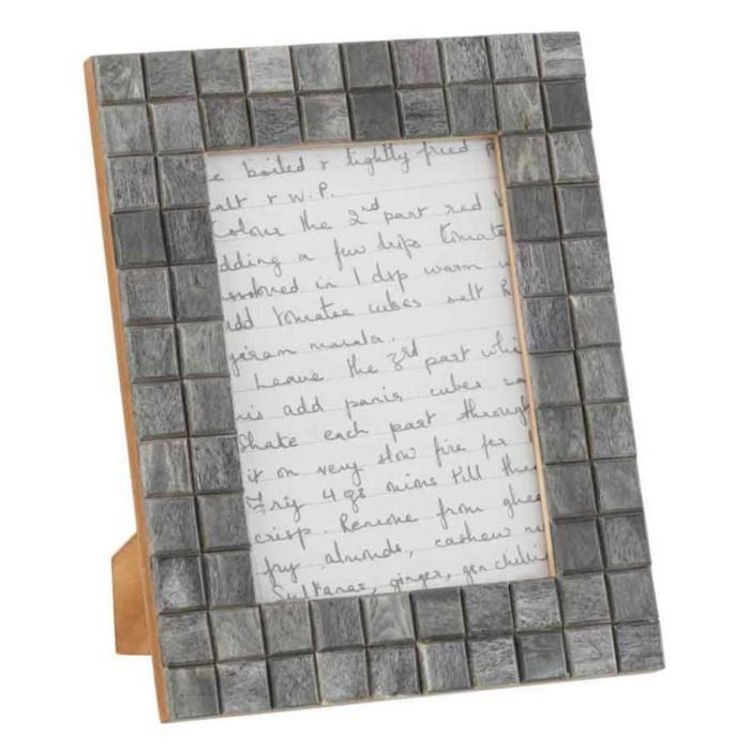 e boiled & lightly fried
alt & W.P.
Colour the 2nd part red
dding a few drps tomato
ssolved in 1 dsp warm
add tomatoe cubes salt
garam masala.
Leave the 3rd part whi
his add panir cubes
Shake each part through
it on very slow fire for
Fry 4 qs mins till the
crisp. Remove from ghee
fry almonds, cashew nu
Sultanas, ginger, gen chilli